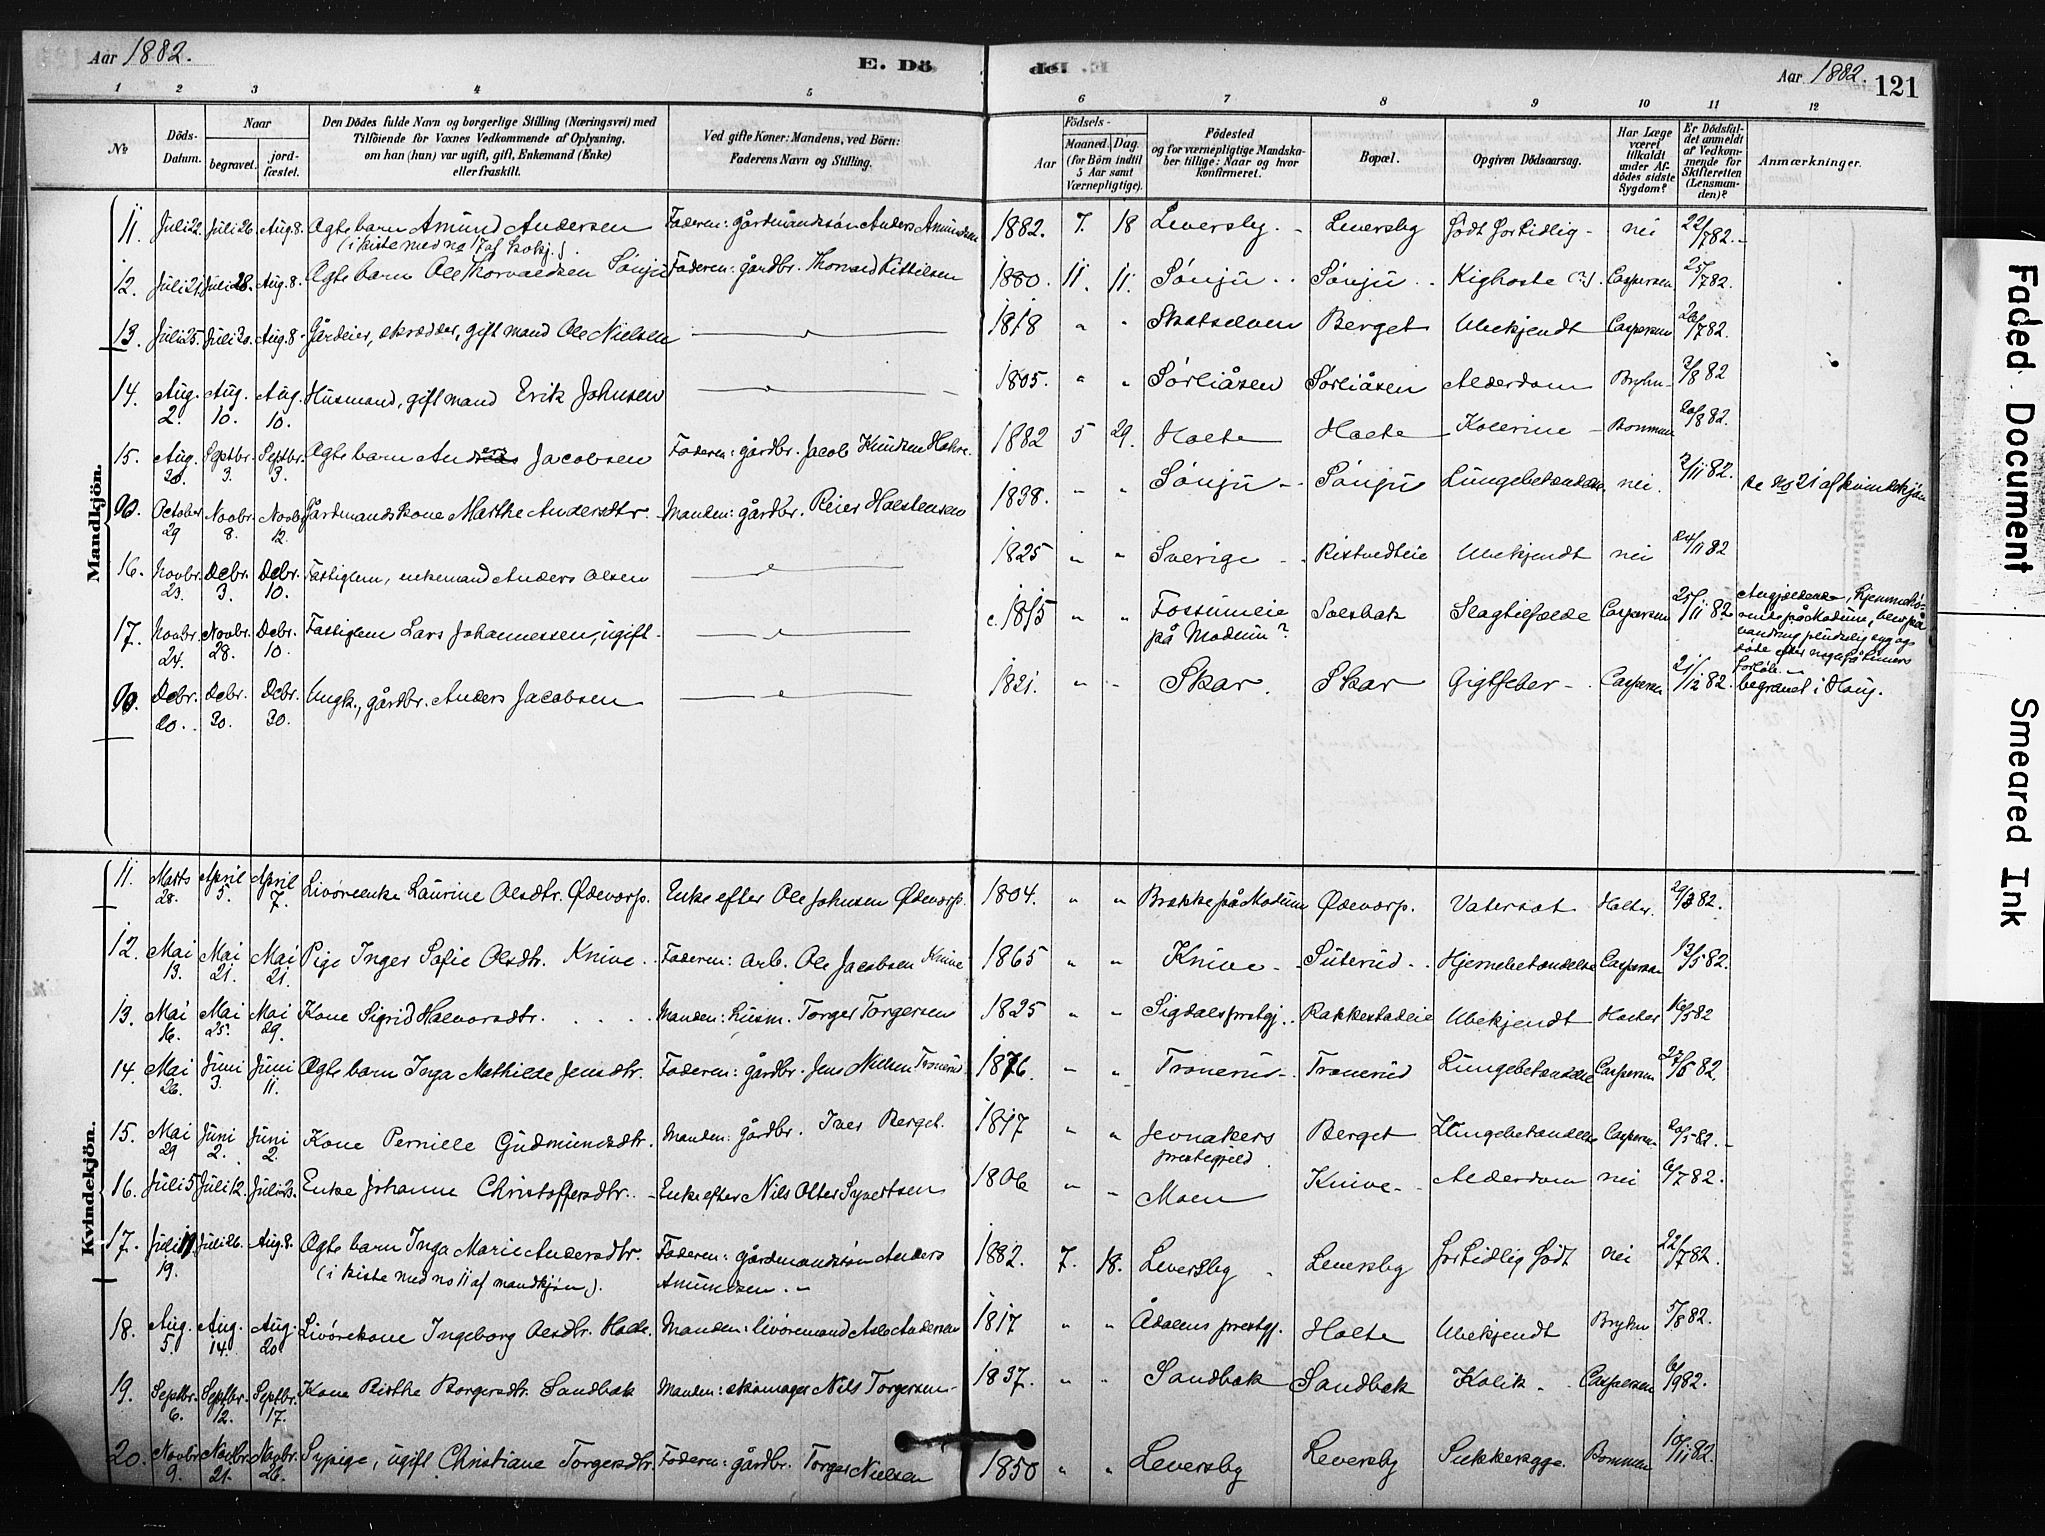 Aar 1882.
E. Dö
de.
Aar 1882. 121
1 2 3 4 5 6 7 8 9 10 11 12
No
Döds-Datum.
Naar
begravet.
jord-fæstet.
Den Dödes fulde Navn og borgerlige Stilling (Næringsvei) med
Tilföiende for Voxnes Vedkommende af Oplysning,
om han (hun) var ugift, gift, Enkemand (Enke)
eller fraskilt.
Ved gifte Koner: Mandens, ved Börn:
Faderens Navn og Stilling.
Födsels-
Aar
Maaned. Dag.
(for Börn indtil
5 Aar samt
Værnepligtige).
Födested
og for værnepligtige Mandska-
ber tillige: Naar og hvor
konfirmeret.
Bopæl.
Opgiven Dödsaarsag.
Har Læge
været
tilkaldt
under Af-
dödes sidste
Sygdom?
Er Dödsfal-
det anmeldt
af Vedkom-
mende for
Skifteretten
(Lensman-
den)?
Anmærkninger.
Mandkjön.
11. Juli 22. Juli 26. Aug. 8. Ægte barn Amund Andersen Faderen: gårdmandssøn Anders Amundsen 1882. 7. 18 Leversby. Leversby født for tidlig nei 22/7 82.
(i kiste med no 17 af kvkj.)
12. Juli 21. Juli 28. Aug. 8. Ægte barn Ole Thorvaldsen Sønju Faderen: gårdbr. Thorvald Kittilsen 1880. 11. 11. Sønju Sønju Kighoste (?) Caspersen 25/7 82.
13. Juli 25. Juli 30. Aug. 8. Gårdeier, skrædder, gift mand Ole Nielsen 1818 " " Skotselven Berget Ubekjendt Caspersen 26/7 82.
14. Aug. 2. Aug. 10. Aug. 10. Husmand, gift mand Erik Johnsen 1805. " " Sørliåsen Sørliåsen Alderdom Bryhn 2/8 82
15. Aug. 20. Septbr. 3. Septbr. 3. Ægte barn Andreas Jacobsen Faderen: gårdbr. Jacob Knudsen 1882 5 29. Holte Holte Kolerine Bomman 20/8 82.
October 29 Novbr. 8. Novbr. 12. Gårdmandskone Marthe Andersdtr. Manden: gårdbr. Reier Halstensen 1838. " " Sønju Sønju Lungebetændelse nei. 2/11 82. se no 21 af kvindekjøn
16. Novbr. 23. Debr. 3. Debr. 10. Fattiglem, enkemand Anders Olsen 1825 " " Sverige Ristvedteie Ubekjendt nei 24/11 82
17. Novbr. 24. Novbr. 28. Debr. 10. Fattiglem Lars Johannessen, ugift c. 1815 " " Fossumeie på Modum? Solsbak Slagtilfælde Caspersen 25/11 82. Angjældende, hjemmehø-
rende på Modum, blev på
vandring pludselig syg og
døde efter nogle få timers
forløb.
Debr. 20. Debr. 30. Debr. 30. Ungk., gårdbr. Anders Jacobsen 1821. " " Skar. Skar Gigtfeber Caspersen 21/12 82. begravet i Haug.
Kvindekjön.
11. Marts 28. April 5. April 7. Livøreenke Laurine Olsdtr. Ødevorp. Enke efter Ole Johnsen Ødevorp. 1804. " " Brække på Modum Ødevorp. Vatersot Holter. 29/3 82.
12. Mai 13. Mai 21. Mai 21. Pige Inger Sofie Olsdtr. Knive Faderen: arb. Ole Jacobsen Knive 1865 " " Knive Suterud Hjernebetændelse Caspersen 13/5 82.
13. Mai 16. Mai 25. Mai 29. Kone Sigrid Halvorsdtr. Manden: husm. Torger Torgersen 1825 " " Sigdals prstgj. Rakkestadeie Ubekjendt Holter 16/5 82
14. Mai 26. Juni 3. Juni 11. Ægte barn Inga Mathilde Jensdtr. Faderen: gårdbr. Jens Nilsen Tronerud 1876. " " Tronerud Tronerud Lungebetændelse Caspersen 27/5 82.
15. Mai 29 Juni 2. Juni 2. Kone Pernille Gudmundsdtr. Manden: gårdbr. Iver Berget. 1817 " " Jevnakers prestegjeld. Berget Lungebetændelse Caspersen 5 82.
16. Juli 5 Juli 12. Juli 23. Enke Johanne Christoffersdtr. Enke efter Nils Olter Syvertsen 1806 " " Moen Knive Alderdom nei 6/7 82.
17. Juli 19. Juli 26. Aug. 8. Ægte barn Inga Marie Andersdtr. Faderen: gårdmandssøn Anders Amundsen. 1882. 7. 18. Leversby Leversby for tidlig født nei 22/7 82.
(i kiste med no 11 af mandkjøn).
18. Aug. 5. Aug. 14. Aug. 20 Livørekone Ingeborg Olsdtr. Holte. Manden: livøremand Asle Andersen 1817 " " Ådalens prestgj. Holte Ubekjendt Bryhn 5/8 82.
19. Septbr. 6. Septbr. 12. Septbr. 17. Kone Birthe Borgersdtr. Sandbæk Manden: skomager Nils Torgersen 1837. " " Sandbæk Sandbæk Kolik. Caspersen 6/9 82.
20. Novbr. 9. Novbr. 21. Novbr. 26. Sypige, ugift Christiane Torgersdtr. Faderen: gårdbr. Torger Nielsen 1850 " " Leversby Leversby Sukkersyge. Bomman 10/11 82.
Faded Document
Smeared Ink